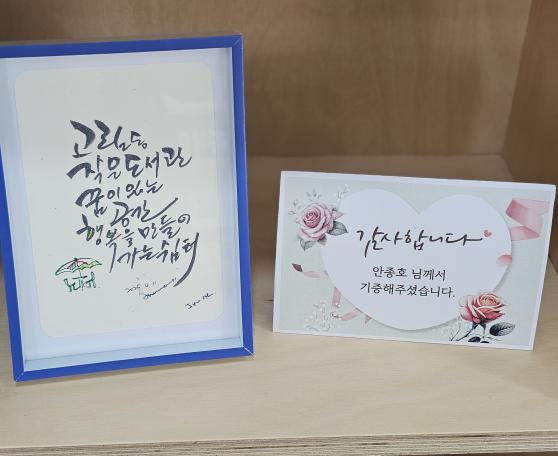 고림동
작은도서관
꿈이있는
공간
행복을만들어
가는쉼터
감사합니다
안종호 님께서
기증해주셨습니다.